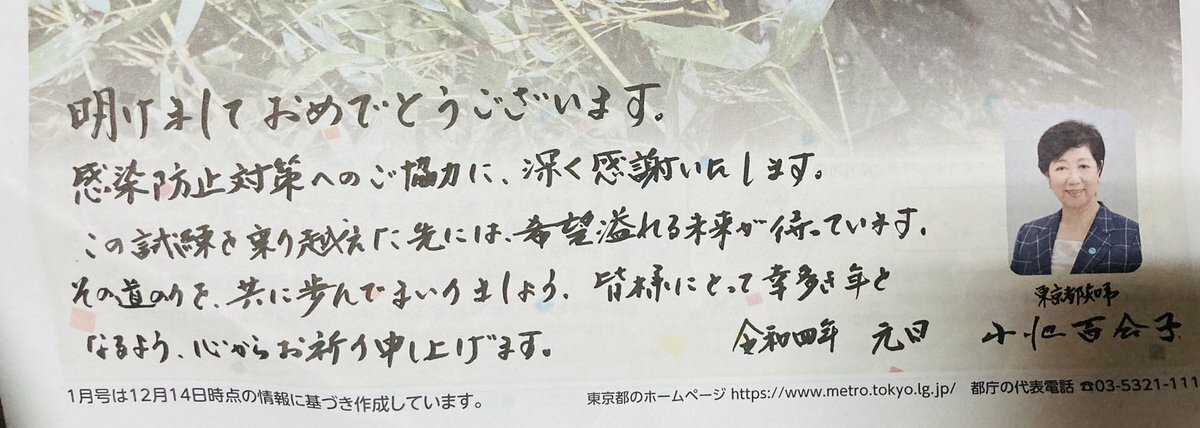 明けましておめでとうございます。
感染防止対策へのご協力に、深く感謝いたします。
この試練を乗り越えた先には、希望溢れる未来が待っています。
その道のりを、共に歩んでまいりましょう。皆様にとって幸多き年と
なるよう、心からお祈り申し上げます。
令和四年 元日
東京都知事
小池百合子
1月号は12月14日時点の情報に基づき作成しています。
東京都のホームページ https://www.metro.tokyo.lg.jp/ 都庁の代表電話 ☎03-5321-111